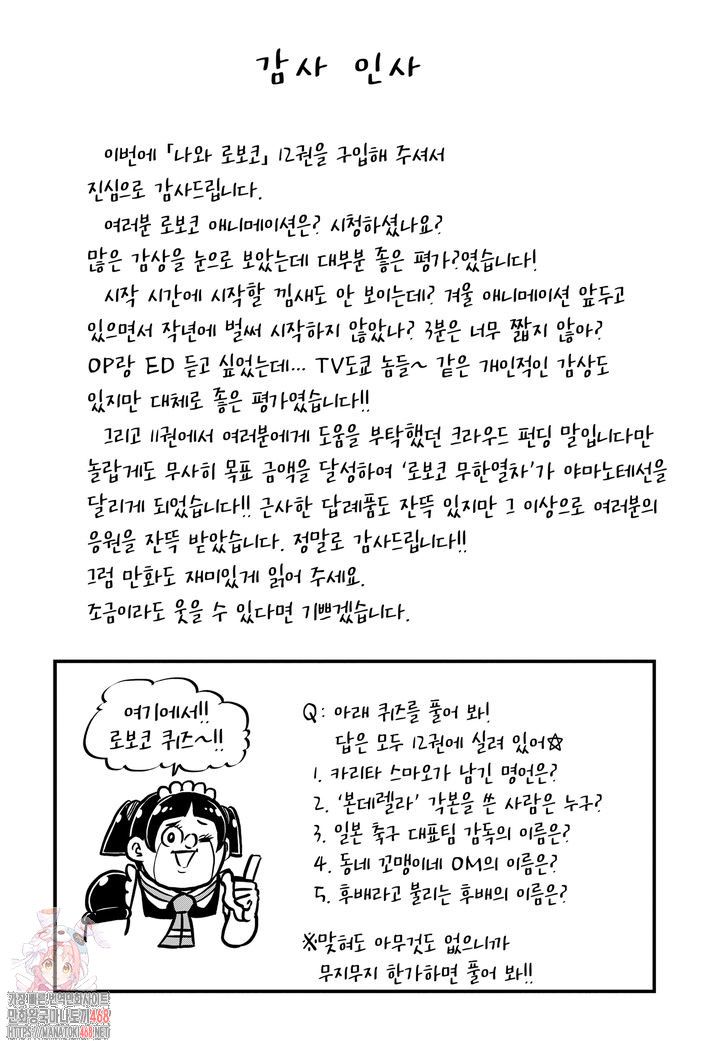 감사 인사
이번에 「나와 로보코」 12권을 구입해 주셔서
진심으로 감사드립니다.
여러분 로보코 애니메이션은? 시청하셨나요?
많은 감상을 눈으로 보았는데 대부분 좋은 평가?였습니다!
시작 시간에 시작할 낌새도 안 보이는데? 겨울 애니메이션 앞두고
있으면서 작년에 벌써 시작하지 않았나? 3분은 너무 짧지 않아?
OP랑 ED 듣고 싶었는데... TV도쿄 놈들~ 같은 개인적인 감상도
있지만 대체로 좋은 평가였습니다!!
그리고 11권에서 여러분에게 도움을 부탁했던 크라우드 펀딩 말입니다만
놀랍게도 무사히 목표 금액을 달성하여 '로보코 무한열차'가 야마노테선을
달리게 되었습니다!! 근사한 답례품도 잔뜩 있지만 그 이상으로 여러분의
응원을 잔뜩 받았습니다. 정말로 감사드립니다!!
그럼 만화도 재미있게 읽어 주세요.
조금이라도 웃을 수 있다면 기쁘겠습니다.
여기에서!!
로보코 퀴즈~!!
Q: 아래 퀴즈를 풀어 봐!
답은 모두 12권에 실려 있어☆
1. 카리타 스마오가 남긴 명언은?
2. '본데렐라' 각본을 쓴 사람은 누구?
3. 일본 축구 대표팀 감독의 이름은?
4. 동네 꼬맹이네 OM의 이름은?
5. 후배라고 불리는 후배의 이름은?
※맞혀도 아무것도 없으니까
무지무지 한가하면 풀어 봐!!
가장 빠른 번역만화사이트
만화왕국마나토끼468
HTTPS://MANATOKI468.NET